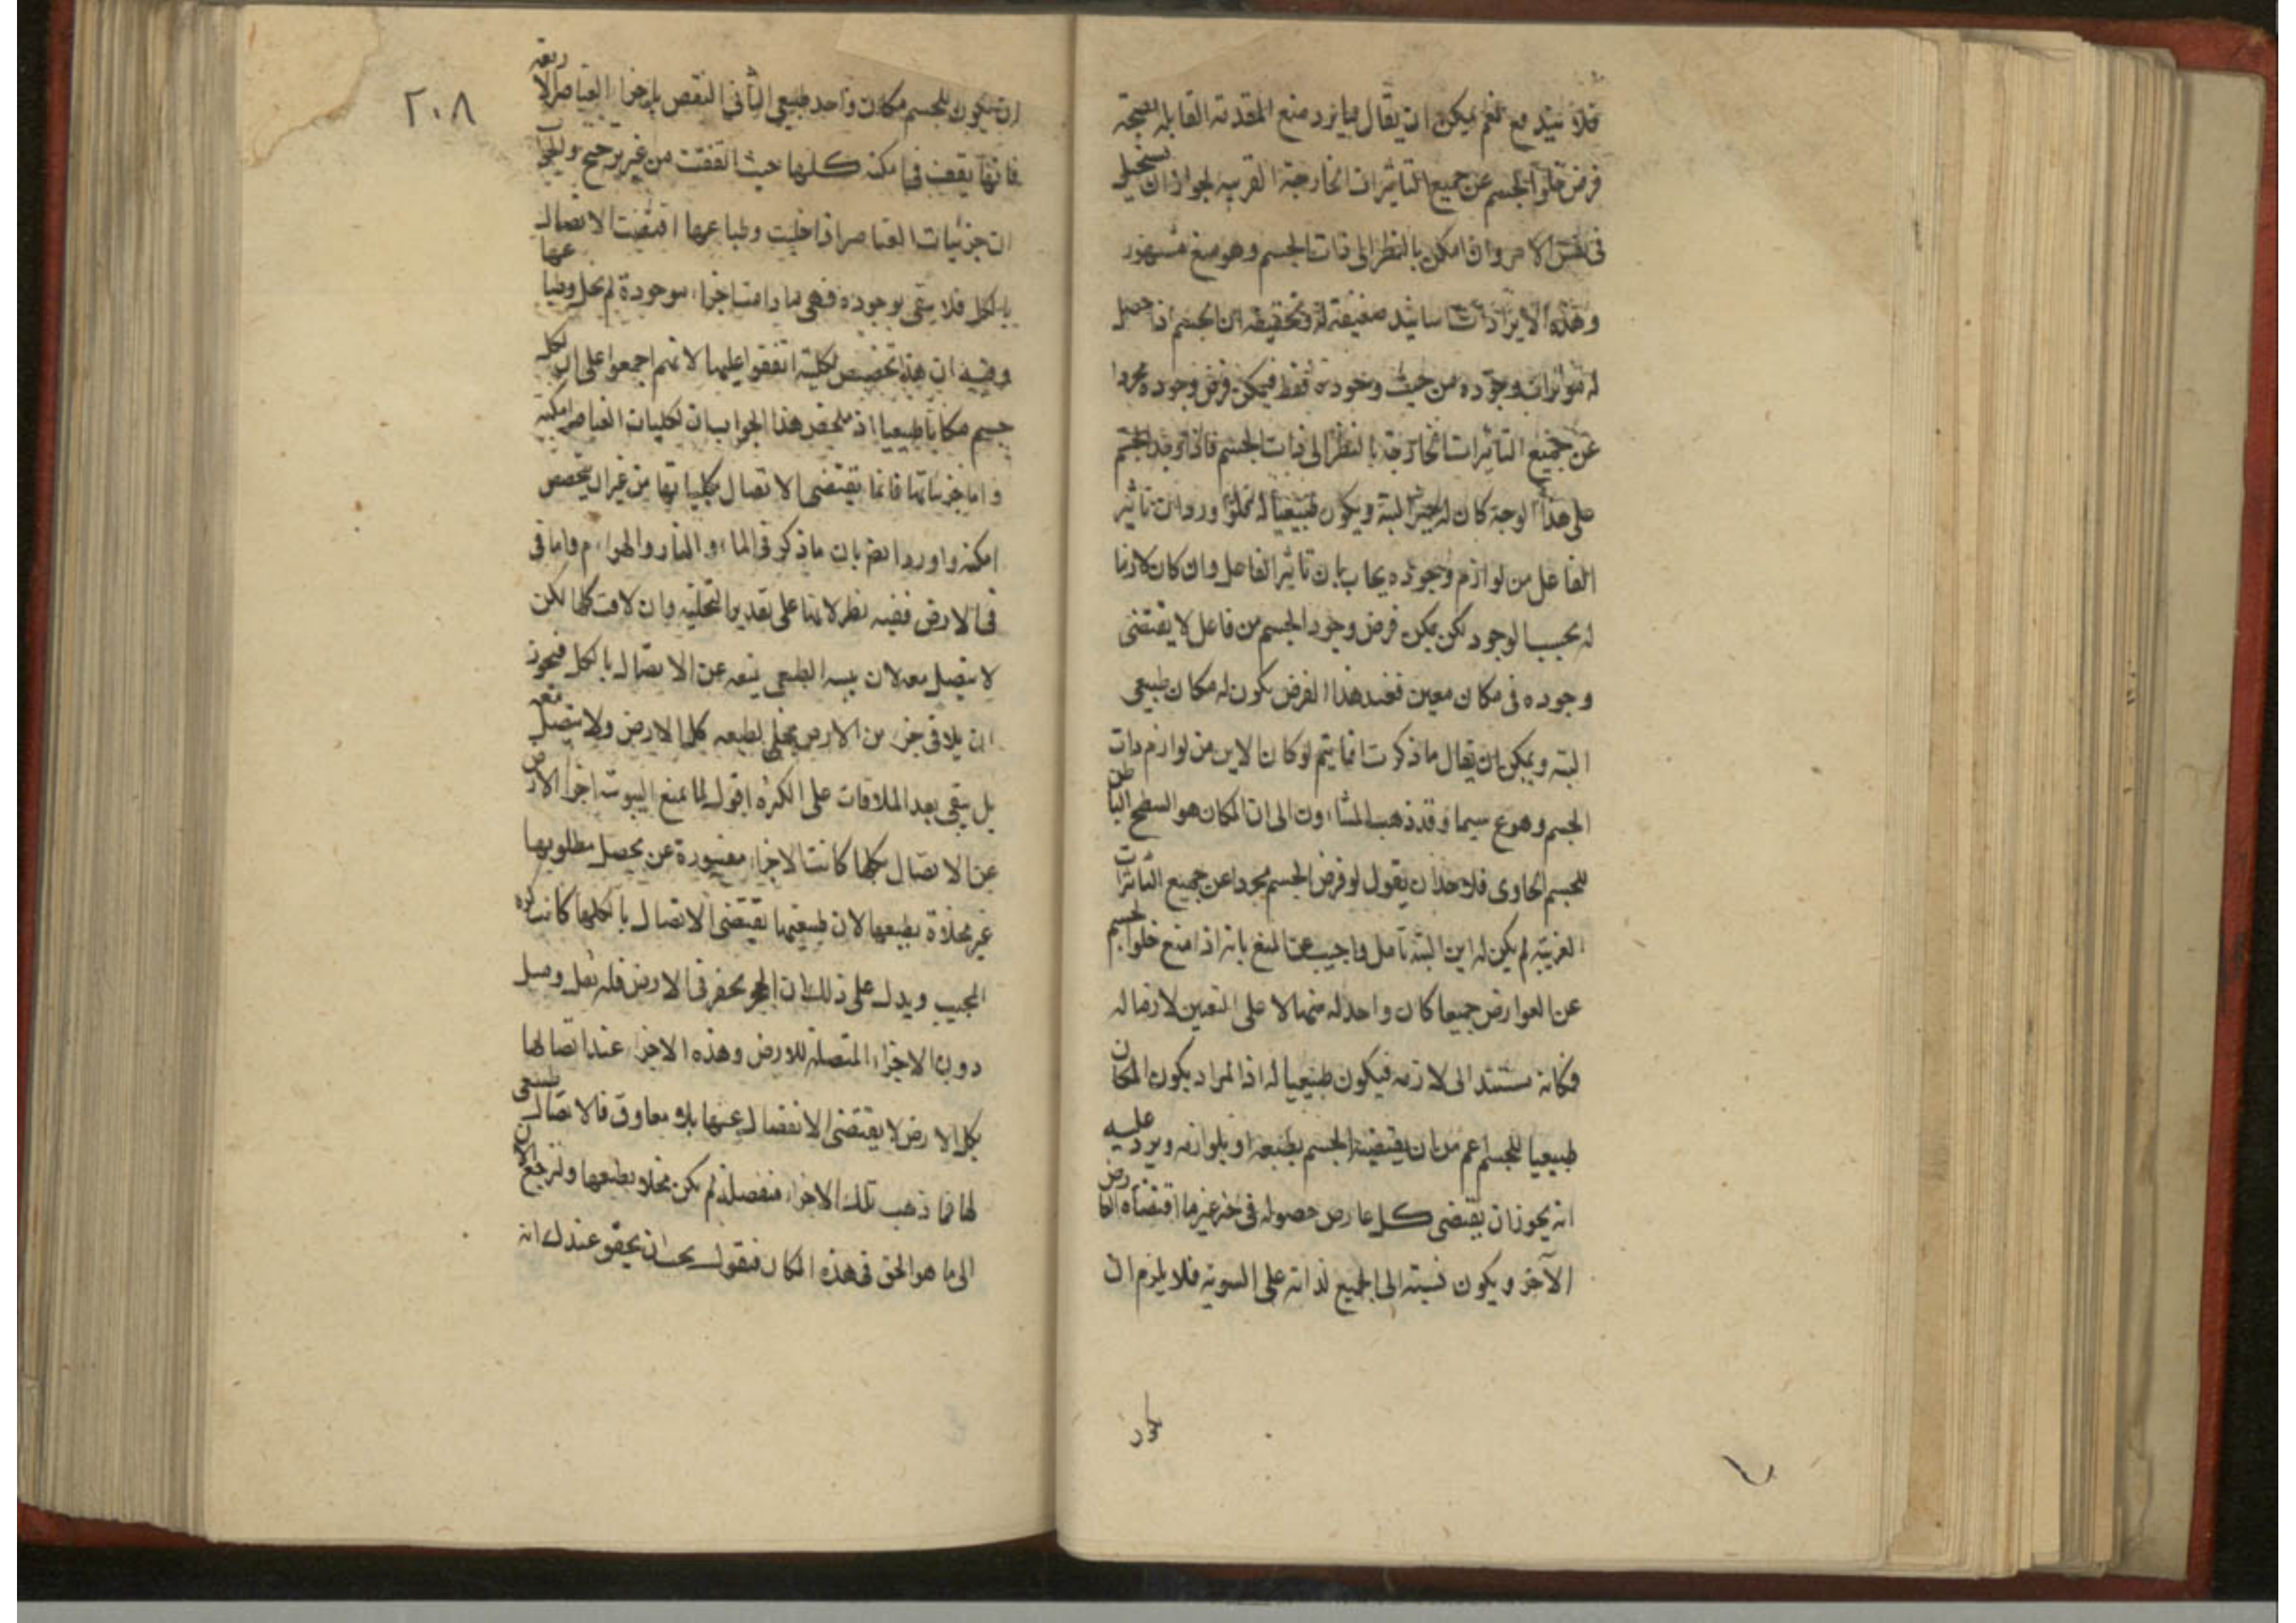 فلا يتد مع نعم يمكن ان يقال فيما نرد منع المقدمة القابلة
فرض خلو الجسم عن جميع التاثيرات الخارجة الغريبة لجواز ان يستحيل
فى نفس الامر وان امكن بالنظر الى ذات الجسم وهو منع مشهور
وهذه الايرادات اسانيد ضعيفة له وتحقيقه ان الجسم اذا حصل
له وجوده من حيث وجوده فقط فيمكن فرض وجوده مجردا
عن جميع التاثيرات الخارجة بالنظر الى ذات الجسم فاذا وجد الجسم
على هذا الوجه كان له حيز البتة ويكون طبيعيا له ورد ان تاثير
الفاعل من لوازم وجوده يجاب بان تاثير الفاعل وان كان لازما
له بحسب الوجود لكن يمكن فرض وجود الجسم من فاعل لا يقتضى
وجوده فى مكان معين فعند هذا الفرض يكون له مكان طبيعى
البتة ويمكن ان يقال ما ذكرت انما يتم لو كان الاين من لوازم ذات
الجسم وهو ع سيما وقد ذهب المشاءون الى ان المكان هو السطح الباطن
للجسم الحاوى فلاحد ان يقول لو فرض الجسم مجردا عن جميع التاثيرات
الغريبة لم يكن له اين البتة تامل واجيب عن المنع بانه اذا امتنع خلو الجسم
عن العوارض جميعا كان واحد له منها لا على التعيين لازما له
فكانه مستند الى لازمه فيكون طبيعيا له اذ المراد بكون المكان
طبيعيا للجسم اعم من ان يقتضيه الجسم بطبعه او بلوازمه ويرد عليه
انه يجوز ان يقتضى كل عارض حصوله فى حيز غير ما اقتضاه العارض
الآخر ويكون نسبته الى الجميع لذاته على السوية فلا يلزم ان
٢٠٨
ان يكون للجسم مكان واحد طبيعى الثانى النقض باجزاء العناصر الاربعة
فانها يقف فى امكنة كلها حيث اتفقت من غير ترجيح والجواب
ان جزئيات العناصر اذا خليت وطباعها اقتضت الاتصال
بالكل فلا يبقى موجوده فهى ما دامت اجزاء موجودة لم يخل وطباعها
وفيه ان هذا تخصيص لكلية اتفقوا عليها لانهم اجمعوا على ان لكل
جسم مكانا طبيعيا اذ ملخص هذا الجواب ان لكليات العناصر امكنة
واما جزئياتها فانما يقتضى الاتصال بكلياتها من غير ان يتخصص
امكنة واورد ايضا بان ما ذكر فى الماء والنار والهواء م واما فى
فى الارض ففيه نظر لانها على تقدير التخلية وان لاقت كلها لكن
لا يتصل معه لان يبسه الطبعى يمنعه عن الاتصال بالكل فيجوز
ان يلاقى جزء من الارض مخلى بطبعه كل الارض ولا يتصل معه
بل يبقى بعد الملاقات على الكرة اقول لما يمنع اليبوسة اجزاء الارض
عن الاتصال بكلها كانت الاجزاء مقسورة عن تحصيل مطلوبها
غير مخلاة بطبعها لان طبيعتها يقتضى الاتصال بالكل كما ذكره
المجيب ويدل على ذلك ان الحجر يحفر فى الارض فله ثقل وميل
دون الاجزاء المتصلة للارض وهذه الاجزاء عند اتصالها
بكل الارض لا يقتضى الانفصال عنها بلا معاوق فالاتصال طبيعى
لها فما ذهب تلك الاجزاء منفصلة لم يكن مخلاة بطبعها ولنرجع الآن
الى ما هو الحق فى هذه المكان فنقول يجب ان يحقق عندك انه